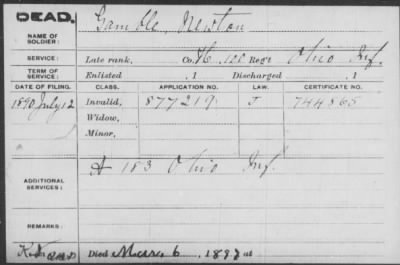 DEAD.
Gamble, Newton
NAME OF
SOLDIER:
SERVICE:
Late rank, Co. H, 120 Reg't Ohio Inf.
TERM OF
SERVICE:
Enlisted , 1 Discharged , 1
DATE OF FILING. CLASS. APPLICATION NO. LAW. CERTIFICATE NO.
1890 July 12 Invalid, 877219 J 744865
Widow,
Minor,
A 183 Ohio Inf.
ADDITIONAL
SERVICES:
REMARKS:
Died 6, 189 at